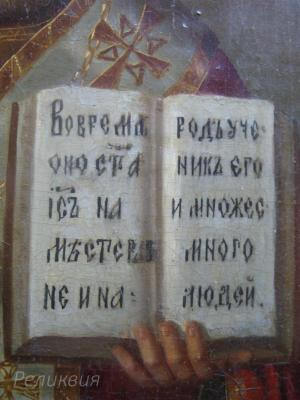 Вовремѧ
оно ста
І҃съ на
мѣстерав
не и на
родъ уче
никъ его
и множес
много
людей.
Реликвия